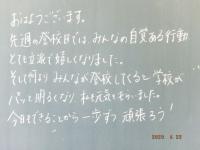 おはようございます。
先週の登校日では、みんなの自覚ある行動
とても立派で嬉しくなりました。
そして何よりみんなが登校してくると学校が
パッと明るくなり、私も元気をもらいました。
今日もできることから一歩ずつ頑張ろう!
2020 5.22